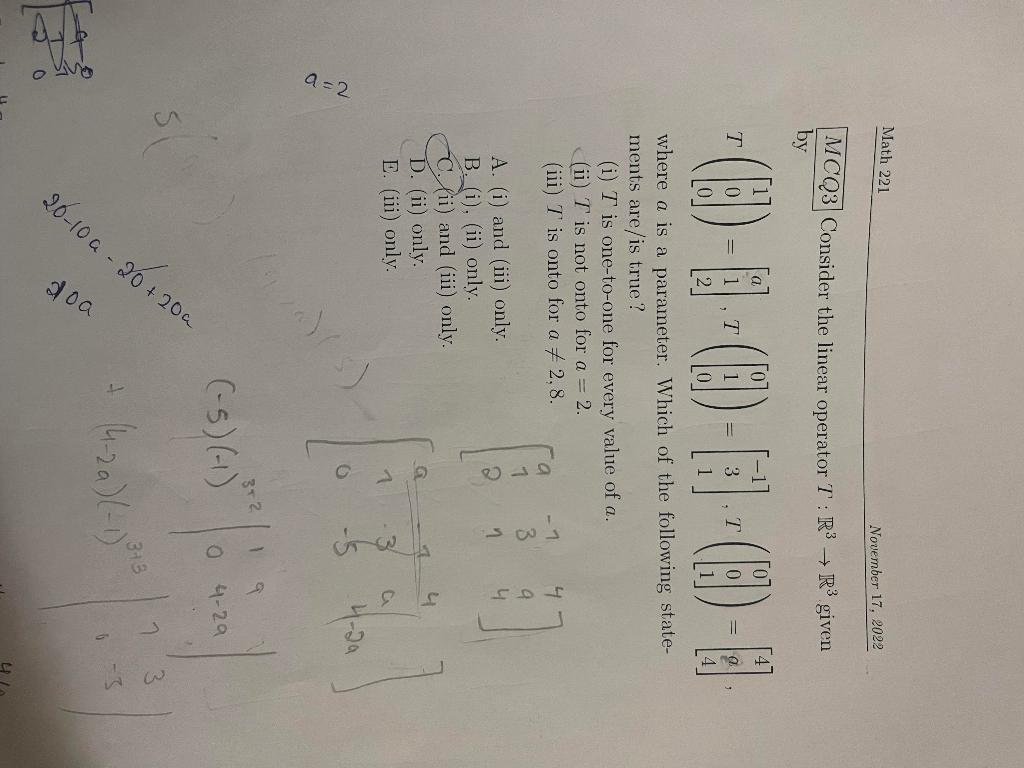 Math 221 November 17, 2022
MCQ3 Consider the linear operator T : ℝ³ → ℝ³ given
by
T([1 0 0]) = [a 1 2], T([0 1 0]) = [-1 3 1], T([0 0 1]) = [4 a 4],
where a is a parameter. Which of the following state-
ments are/is true?
(i) T is one-to-one for every value of a.
(ii) T is not onto for a = 2.
(iii) T is onto for a ≠ 2, 8.
A. (i) and (iii) only.
B. (i), (ii) only.
C. (ii) and (iii) only.
D. (ii) only.
E. (iii) only.
a=2
a -1 4
1 3 a
2 1 4
a 1 4
1 3 a
0 -5 4-2a
5(
(-5)(-1)³⁺²
1 a
0 4-2a
+ (4-2a)(-1)³⁺³
1 3
0 -5
20-10a - 20 + 20a
10a